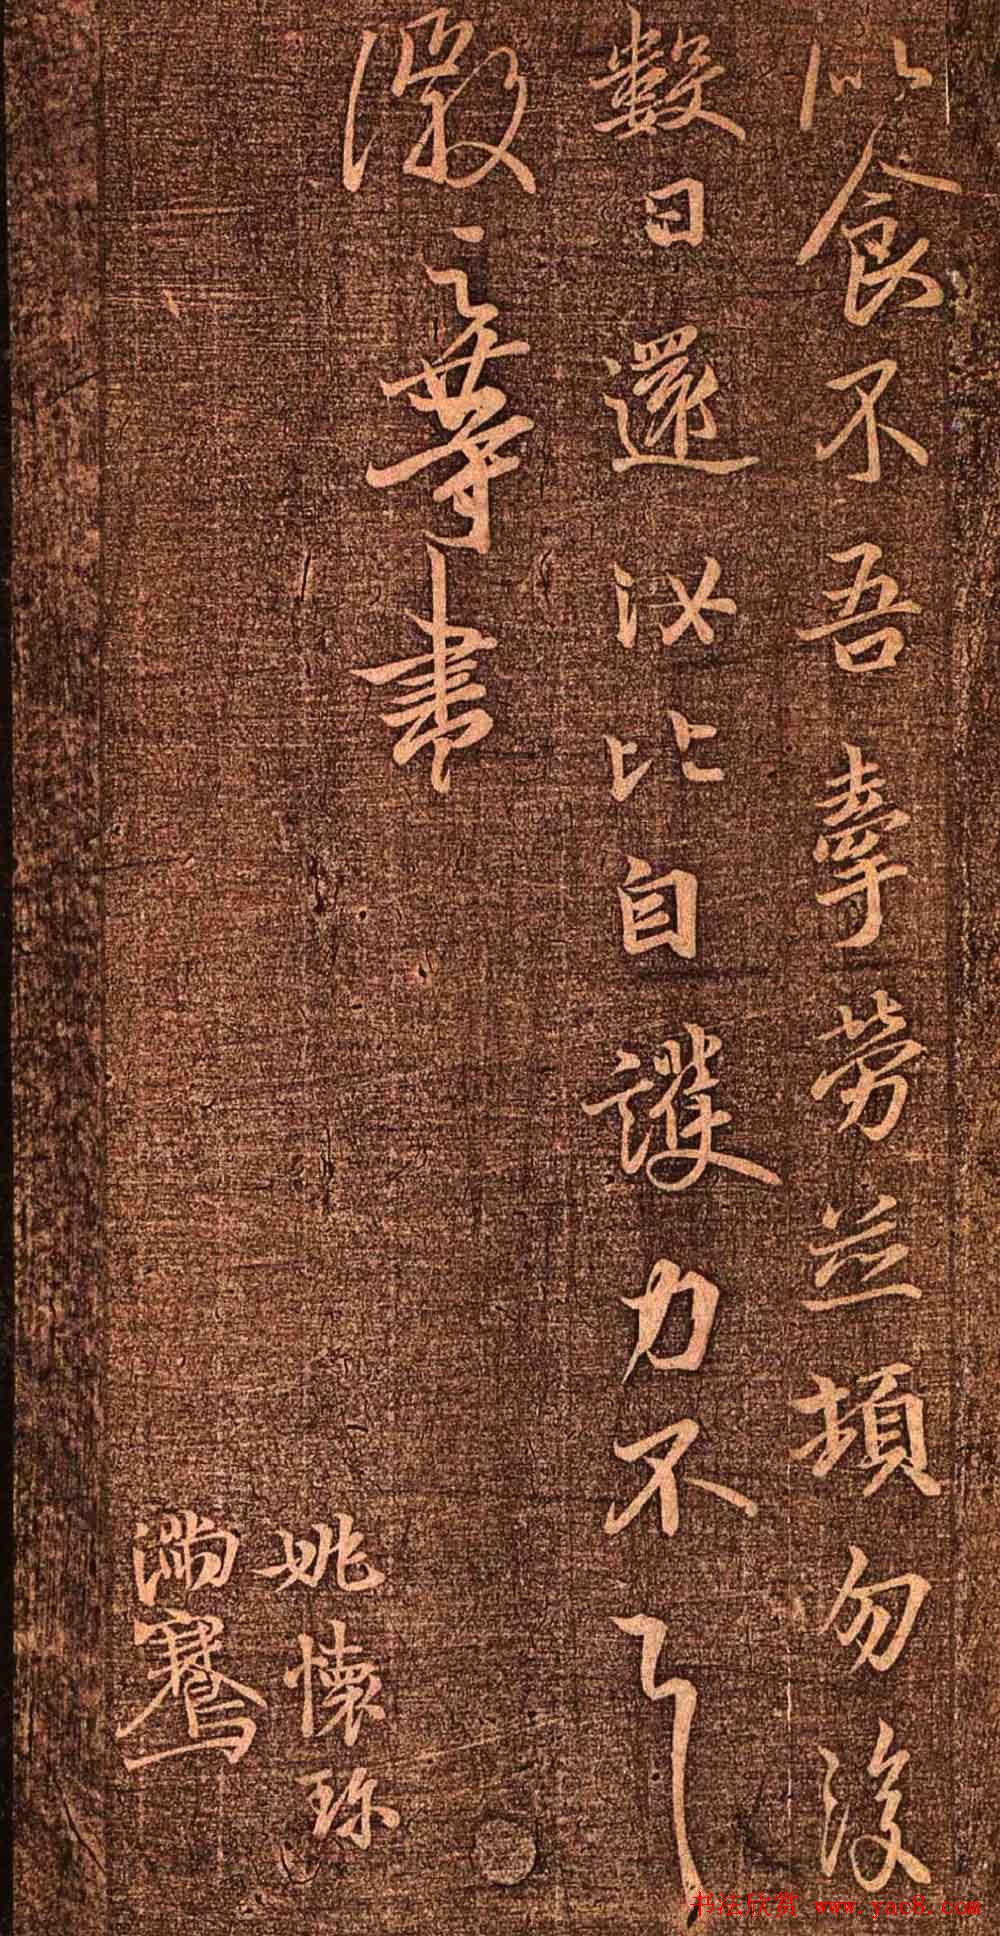 似食不吾牽勞並頓勿復
數日還汝比自護力不
徽之等書
姚懷珍
滿騫
书法欣赏 www.yac8.com